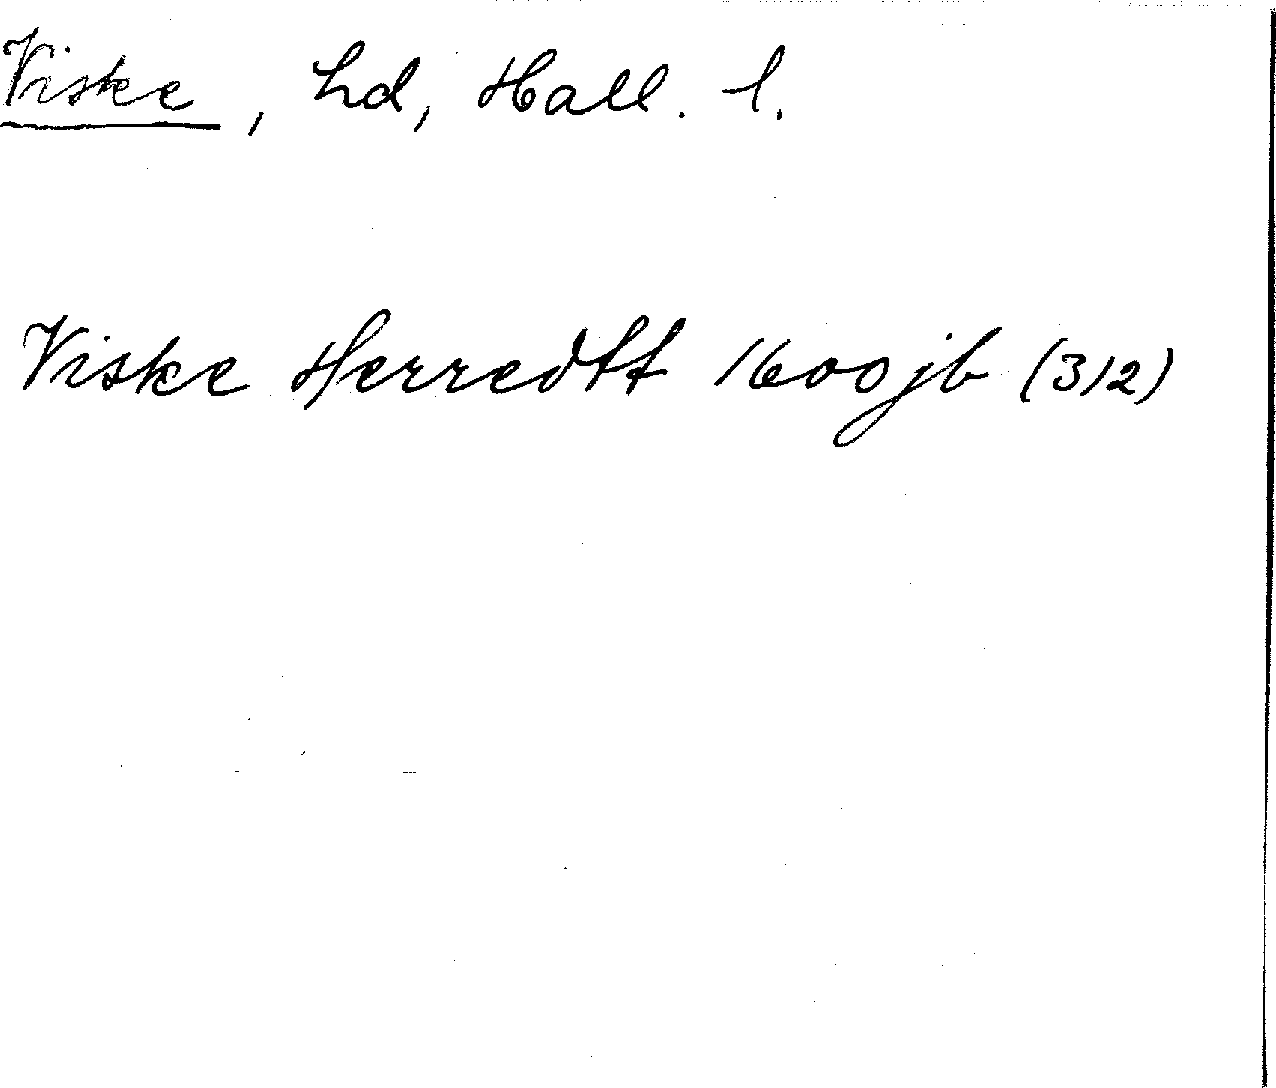 Viske, hd, Hall. l.
Viske Herredtt 1600jb (312)